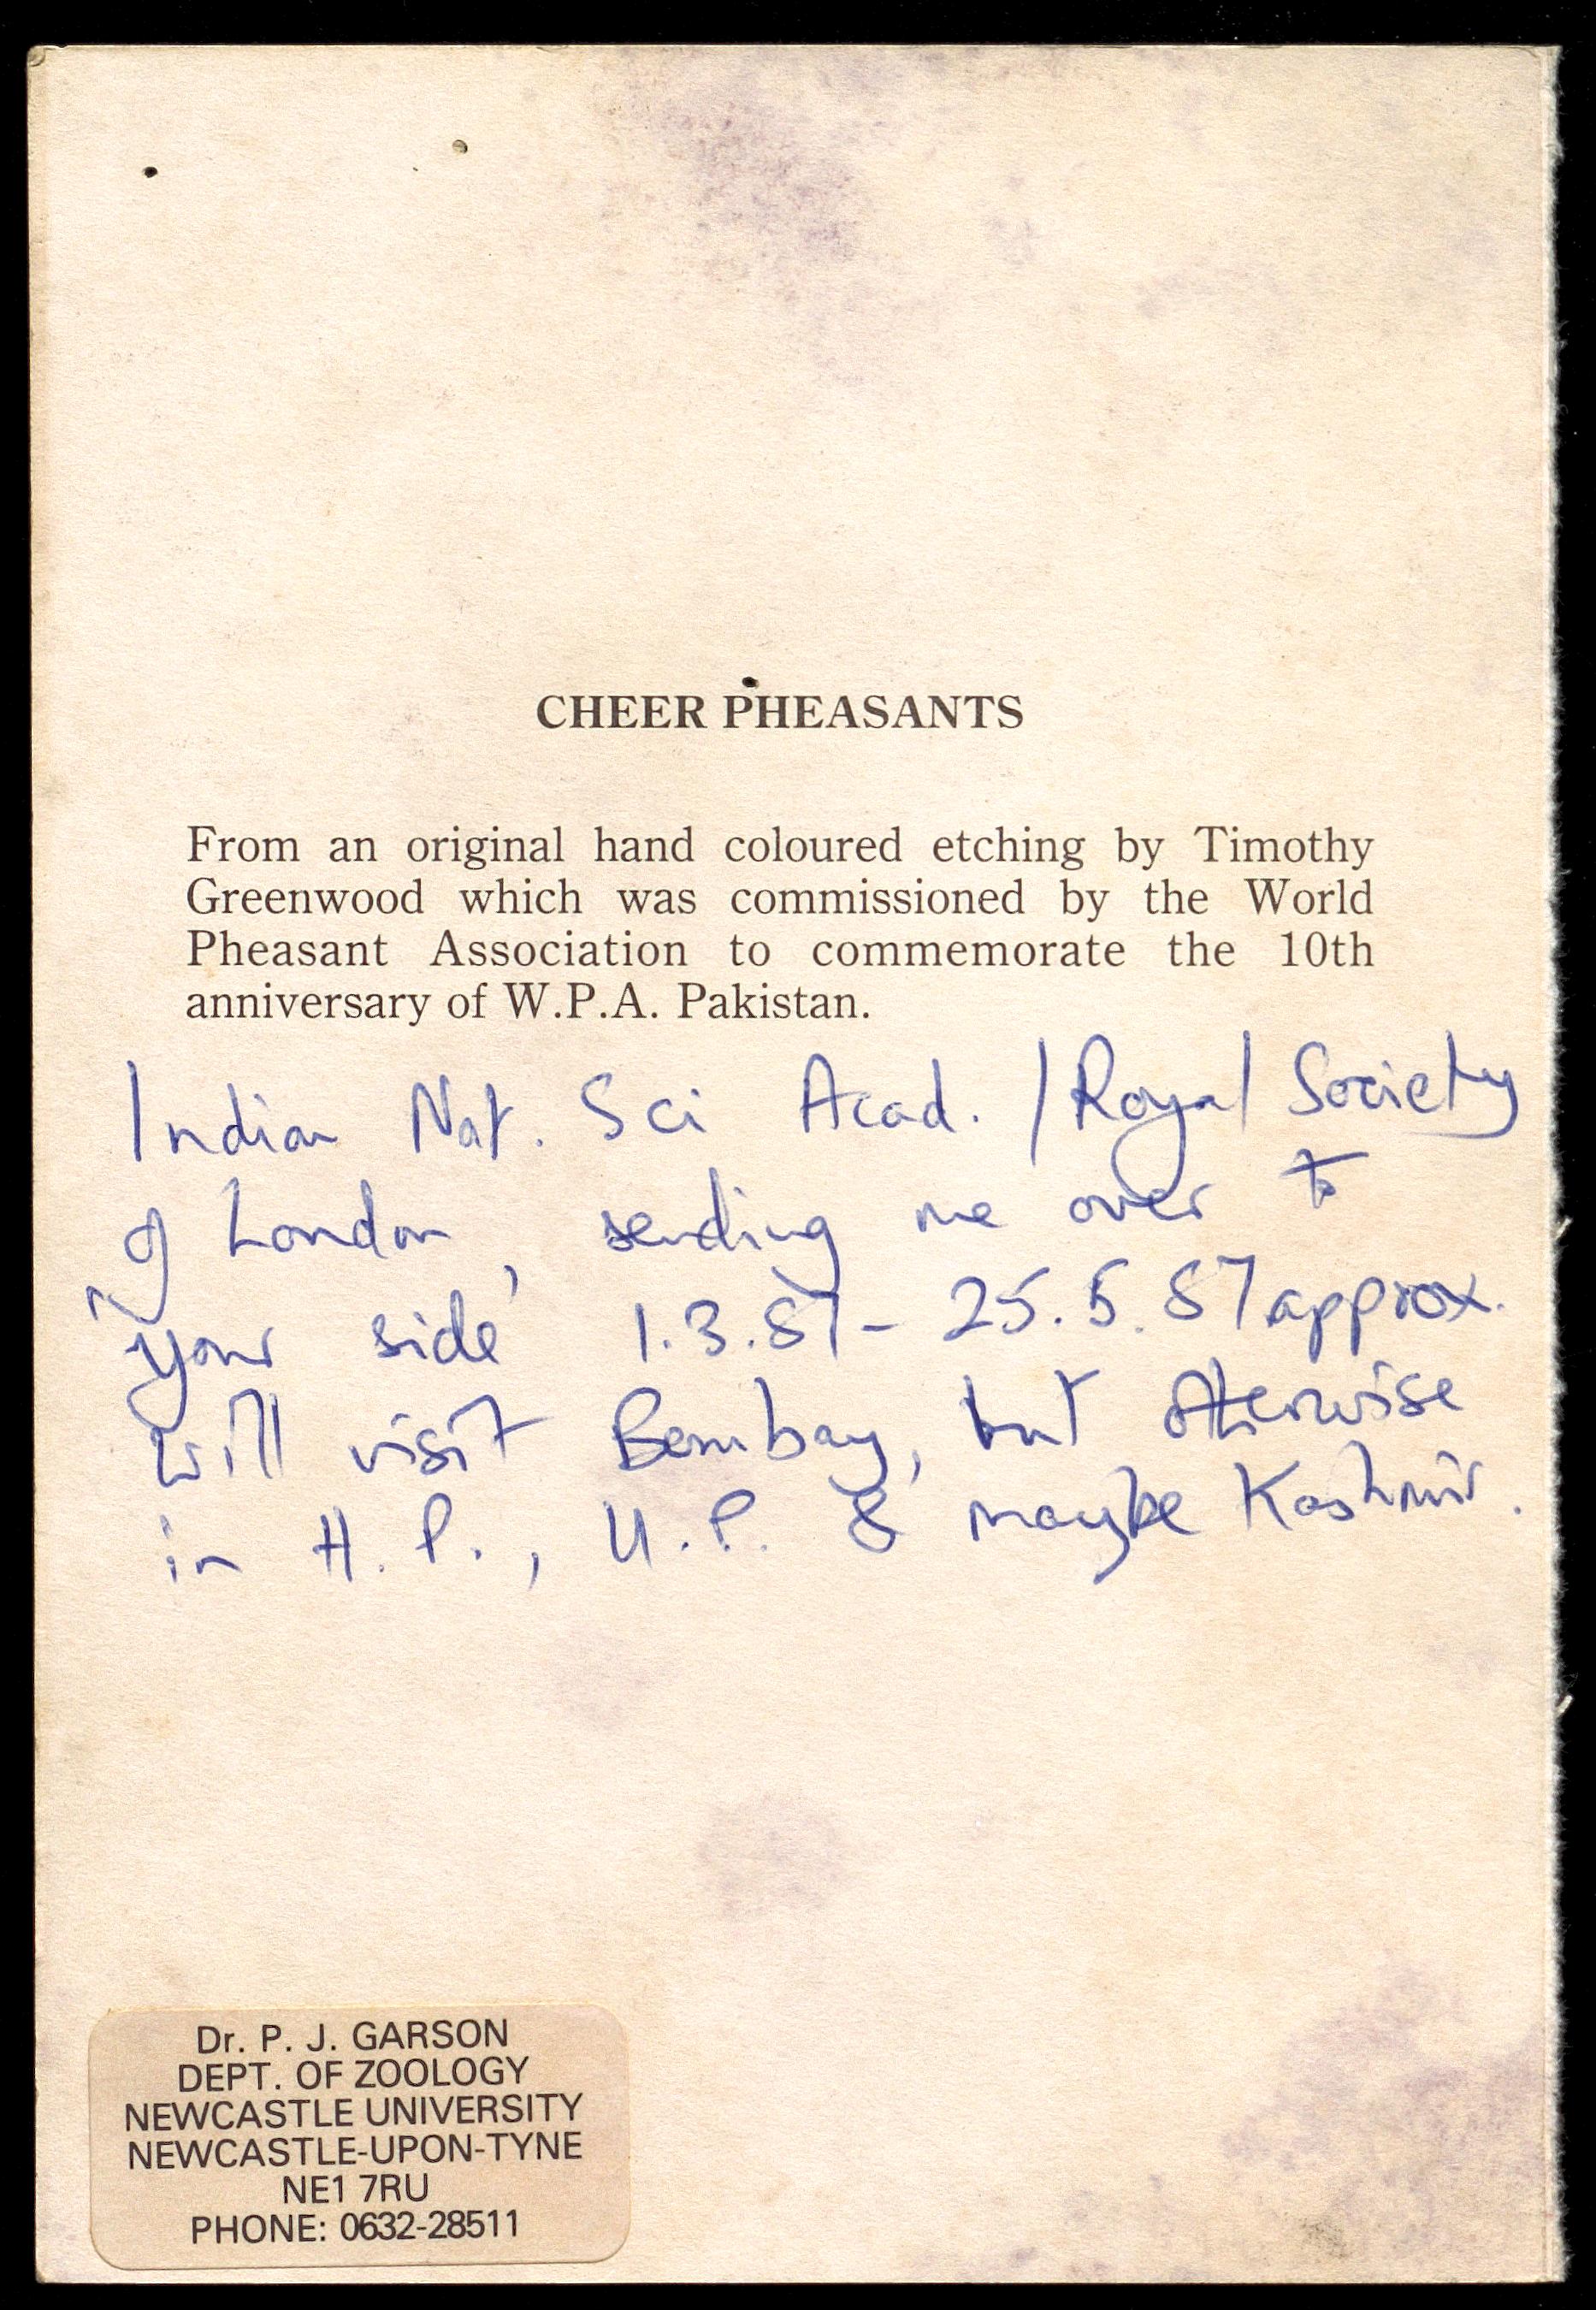 CHEER PHEASANTS
From an original hand coloured etching by Timothy
Greenwood which was commissioned by the World
Pheasant Association to commemorate the 10th
anniversary of W.P.A. Pakistan.
Indian Nat. Sci Acad. / Royal Society
of London, sending me over to
your side' 1.3.87 - 25.5.87 approx.
Will visit Bombay, but otherwise
in H.P., U.P. & maybe Kashmir.
Dr. P. J. GARSON
DEPT. OF ZOOLOGY
NEWCASTLE UNIVERSITY
NEWCASTLE-UPON-TYNE
NE1 7RU
PHONE: 0632-28511